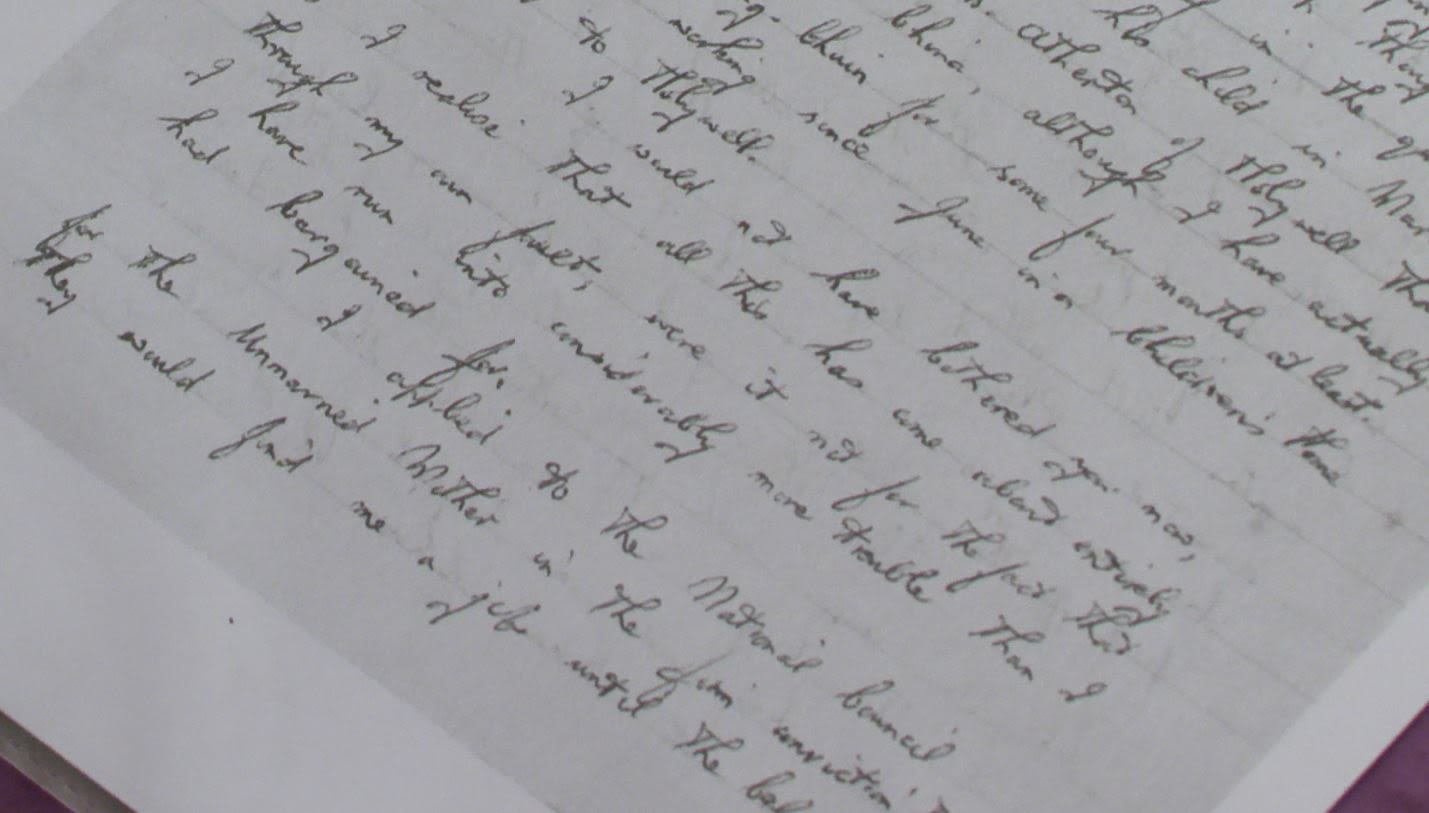 in the
child in
Atherton of Holywell
although I have actually
for some four months at least.
working since June in a Children's Home
to Holywell.
I would not have bothered you now,
I realise that all this has come about entirely
through my own fault, were it not for the fact that
I have run into considerably more trouble than I
had bargained for.
I applied to the National Council
for the Unmarried Mother in the firm conviction
they would find me a job until the